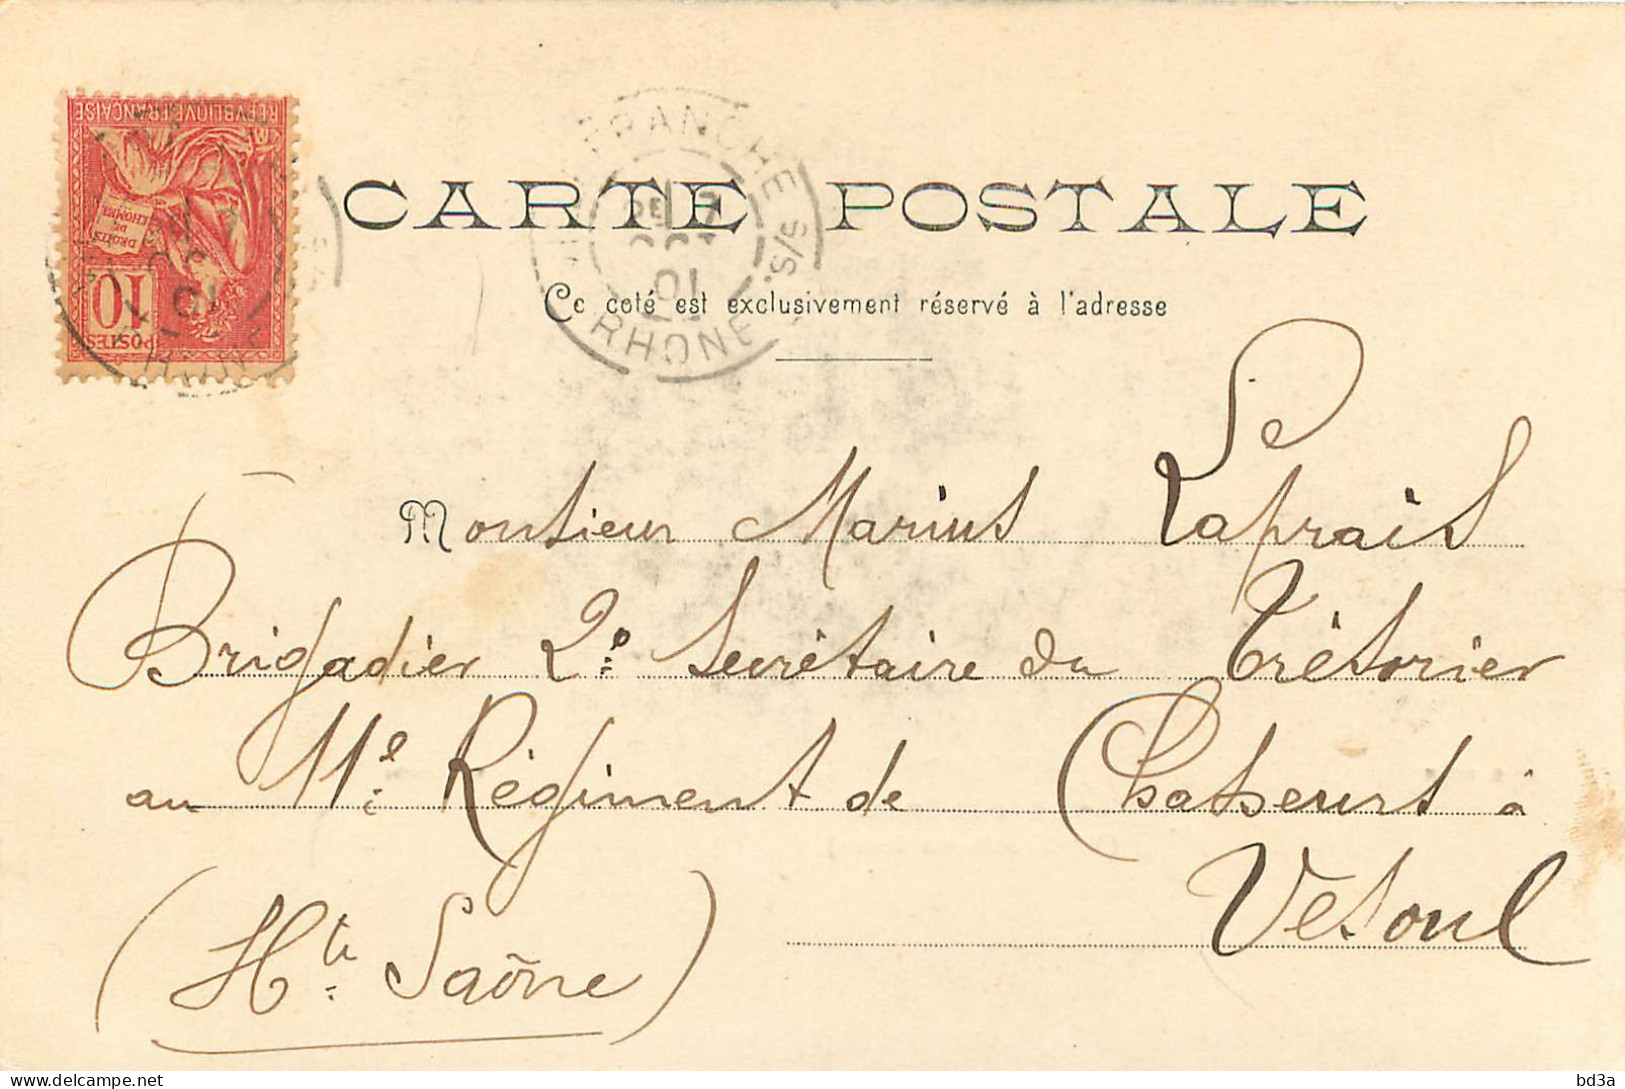 REPVBLIQVE FRANÇAISE
DROITS
DE
L'HOMME
10
POSTES
FRANCHE S/S
01
RHONE
CARTE POSTALE
Ce coté est exclusivement réservé à l'adresse
Monsieur Marius Laprais
Brigadier 2e Secrétaire du Trésorier
au 11e Régiment de Chasseurs à
Vesoul
(Hte Saône)
bd3a